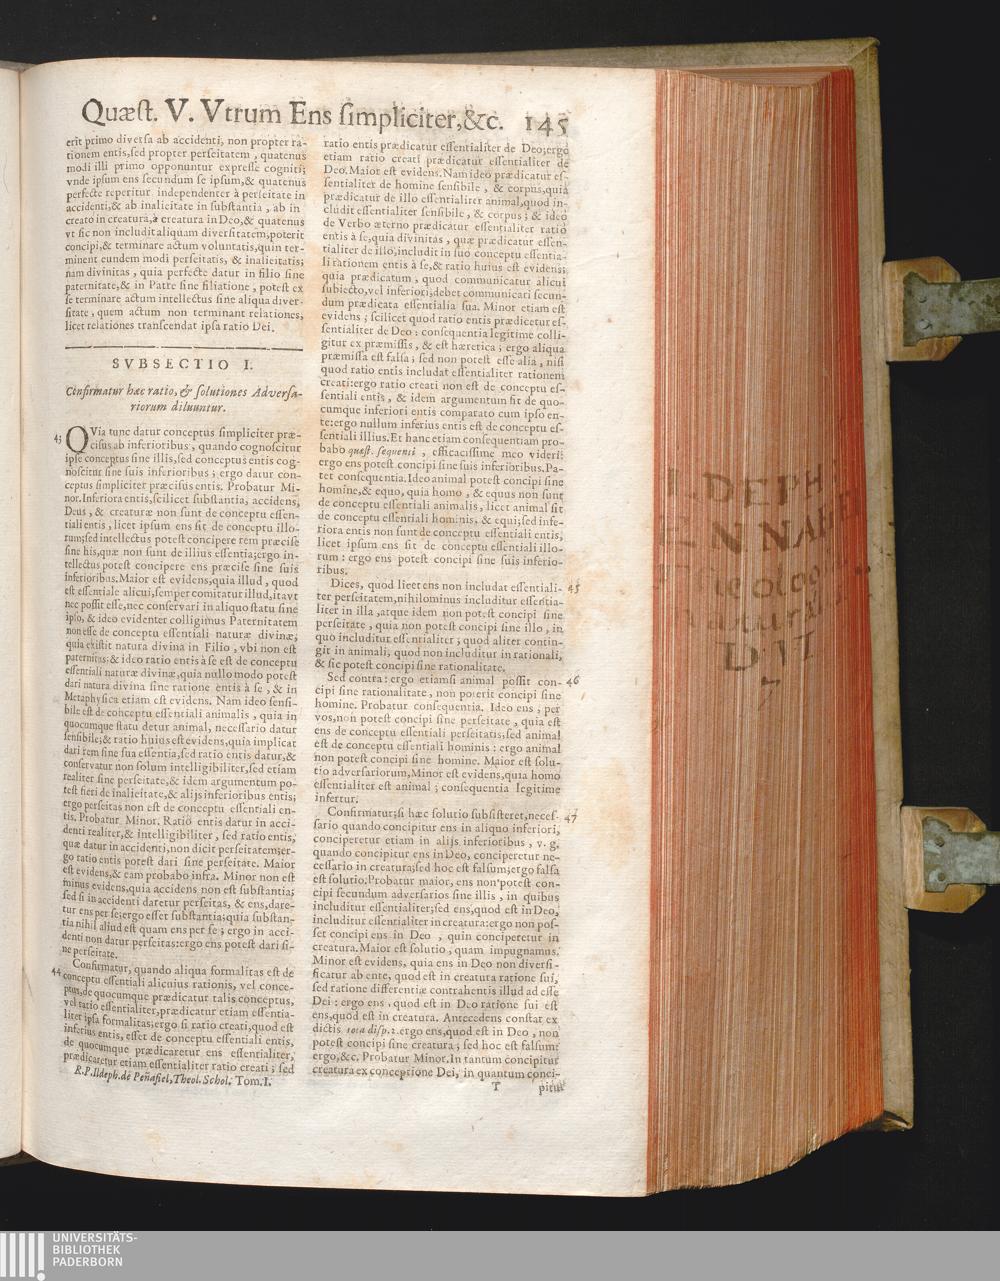 Quæſt. V. Vtrum Ens ſimpliciter,&c. 145
erit primo diverſa ab accidenti, non propter ra-
tionem entis,ſed propter perſeitatem , quatenus
modi illi primo opponuntur expreſſe cogniti;
vnde ipſum ens ſecundum ſe ipſum,& quatenus
perfecte reperitur independenter à perſeitate in
accidenti,& ab inalicitate in ſubſtantia , ab in
creato in creatura,à creatura in Deo,& quatenus
vt ſic non includit aliquam diverſitatem,poterit
concipi,& terminare actum voluntatis,quin ter-
minent eundem modi perſeitatis, & inalieitatis;
nam divinitas , quia perfecte datur in filio ſine
paternitate,& in Patre ſine filiatione , poteſt ex
ſe terminare actum intellectus ſine aliqua diver-
ſitate , quem actum non terminant relationes,
licet relationes tranſcendat ipſa ratio Dei.
SVBSECTIO I.
Confirmatur hæc ratio, & ſolutiones Adverſa-
riorum diluuntur.
43 QVia tunc datur conceptus ſimpliciter præ-
ciſus ab inferioribus , quando cognoſcitur
ipſe conceptus ſine illis,ſed conceptus entis cog-
noſcitur ſine ſuis inferioribus ; ergo datur con-
ceptus ſimpliciter præciſus entis. Probatur Mi-
nor.Inferiora entis,ſcilicet ſubſtantia, accidens,
Deus , & creaturæ non ſunt de conceptu eſſen-
tiali entis , licet ipſum ens ſit de conceptu illo-
rum;ſed intellectus poteſt concipere rem præciſe
ſine his,quæ non ſunt de illius eſſentia;ergo in-
tellectus poteſt concipere ens præciſe ſine ſuis
inferioribus.Maior eſt evidens;quia illud , quod
eſt eſſentiale alicui,ſemper comitatur illud,ita vt
nec poſſit eſſe,nec conſervari in aliquo ſtatu ſine
ipſo, & ideo evidenter colligimus Paternitatem
non eſſe de conceptu eſſentiali naturæ divinæ;
quia exiſtit natura divina in Filio , vbi non eſt
paternitas:& ideo ratio entis à ſe eſt de conceptu
eſſentiali naturæ divinæ,quia nullo modo poteſt
dari natura divina ſine ratione entis à ſe , & in
Metaphyſica etiam eſt evidens. Nam ideo ſenſi-
bile eſt de conceptu eſſentiali animalis , quia in
quocumque ſtatu detur animal, neceſſario datur
ſenſibile;& ratio huius eſt evidens,quia implicat
dari rem ſine ſua eſſentia,ſed ratio entis datur,&
conſervatur non ſolum intelligibiliter,ſed etiam
realiter ſine perſeitate,& idem argumentum po-
teſt fieri de inalieitate,& alijs inferioribus entis;
ergo perſeitas non eſt de conceptu eſſentiali en-
tis. Probatur Minor. Ratio entis datur in acci-
denti realiter,& intelligibiliter , ſed ratio entis,
quæ datur in accidenti,non dicit perſeitatem;er-
go ratio entis poteſt dari ſine perſeitate. Maior
eſt evidens,& eam probabo infra. Minor non eſt
minus evidens,quia accidens non eſt ſubſtantia;
ſed ſi in accidenti daretur perſeitas, & ens,dare-
tur ens per ſe;ergo eſſet ſubſtantia;quia ſubſtan-
tia nihil aliud eſt quam ens per ſe ; ergo in acci-
denti non datur perſeitas:ergo ens poteſt dari ſi-
ne perſeitate.
44 Confirmatur, quando aliqua formalitas eſt de
conceptu eſſentiali alicuius rationis, vel conce-
ptus,de quocumque prædicatur talis conceptus,
vel ratio eſſentialiter,prædicatur etiam eſſentia-
liter ipſa formalitas;ergo ſi ratio creati,quod eſt
inferius entis, eſſet de conceptu eſſentiali entis,
de quocumque prædicaretur ens eſſentialiter,
prædicaretur etiam eſſentialiter ratio creati ; ſed
R.P.Ildeph.de Peñafiel,Theol.Schol. Tom.I.
ratio entis prædicatur eſſentialiter de Deo;ergo
etiam ratio creati prædicatur eſſentialiter de
Deo.Maior eſt evidens.Nam ideo prædicatur eſ-
ſentialiter de homine ſenſibile , & corpus,quia
prædicatur de illo eſſentialiter animal,quod in-
cludit eſſentialiter ſenſibile , & corpus ; & ideo
de Verbo æterno prædicatur eſſentialiter ratio
entis à ſe,quia divinitas , quæ prædicatur eſſen-
tialiter de illo,includit in ſuo conceptu eſſentia-
li rationem entis à ſe,& ratio huius eſt evidens;
quia prædicatum , quod communicatur alicui
ſubiecto,vel inferiori,debet communicari ſecun-
dum prædicata eſſentialia ſua. Minor etiam eſt
evidens ; ſcilicet quod ratio entis prædicetur eſ-
ſentialiter de Deo : conſequentia legitime colli-
gitur ex præmiſſis , & eſt hæretica ; ergo aliqua
præmiſſa eſt falſa ; ſed non poteſt eſſe alia , niſi
quod ratio entis includat eſſentialiter rationem
creati:ergo ratio creati non eſt de conceptu eſ-
ſentiali entis , & idem argumentum fit de quo-
cumque inferiori entis comparato cum ipſo en-
te:ergo nullum inferius entis eſt de conceptu eſ-
ſentiali illius.Et hanc etiam conſequentiam pro-
babo quæſt. ſequenti , efficacissime meo videri:
ergo ens poteſt concipi ſine ſuis inferioribus.Pa-
tet conſequentia.Ideo animal poteſt concipi ſine
homine,& equo, quia homo , & equus non ſunt
de conceptu eſſentiali animalis , licet animal ſit
de conceptu eſſentiali hominis, & equi;ſed infe-
riora entis non ſunt de conceptu eſſentiali entis,
licet ipſum ens ſit de conceptu eſſentiali illo-
rum : ergo ens poteſt concipi ſine ſuis inferio-
ribus.
Dices, quod licet ens non includat eſſentiali- 45
ter perſeitatem,nihilominus includitur eſſentia-
liter in illa ,atque idem non poteſt concipi ſine
perſeitate , quia non poteſt concipi ſine illo , in
quo includitur eſſentialiter ; quod aliter contin-
git in animali, quod non includitur in rationali,
& ſic poteſt concipi ſine rationalitate.
Sed contra : ergo etiamſi animal poſſit con- 46
cipi ſine rationalitate , non poterit concipi ſine
homine. Probatur conſequentia. Ideo ens , per
vos,non poteſt concipi ſine perſeitate , quia eſt
ens de conceptu eſſentiali perſeitatis;ſed animal
eſt de conceptu eſſentiali hominis : ergo animal
non poteſt concipi ſine homine. Maior eſt ſolu-
tio adverſariorum,Minor eſt evidens,quia homo
eſſentialiter eſt animal ; conſequentia legitime
infertur.
Confirmatur;ſi hæc ſolutio ſubſiſteret,neceſ- 47
ſario quando concipitur ens in aliquo inferiori,
conciperetur etiam in alijs inferioribus , v. g.
quando concipitur ens in Deo, conciperetur ne-
ceſſario in creatura;ſed hoc eſt falſum;ergo falſa
eſt ſolutio.Probatur maior, ens non poteſt con-
cipi ſecundum adverſarios ſine illis , in quibus
includitur eſſentialiter;ſed ens,quod eſt in Deo,
includitur eſſentialiter in creatura:ergo non poſ-
ſet concipi ens in Deo , quin conciperetur in
creatura.Maior eſt ſolutio , quam impugnamus.
Minor eſt evidens, quia ens in Deo non diverſi-
ficatur ab ente, quod eſt in creatura ratione ſui,
ſed ratione differentiæ contrahentis illud ad eſſe
Dei : ergo ens , quod eſt in Deo ratione ſui eſt
ens,quod eſt in creatura. Antecedens conſtat ex
dictis tota diſp.1.ergo ens,quod eſt in Deo , non
poteſt concipi ſine creatura ; ſed hoc eſt falſum:
ergo,&c. Probatur Minor.In tantum concipitur
creatura ex conceptione Dei, in quantum conci-
T pitur
DEPH
DIT
UNIVERSITÄTS-
BIBLIOTHEK
PADERBORN